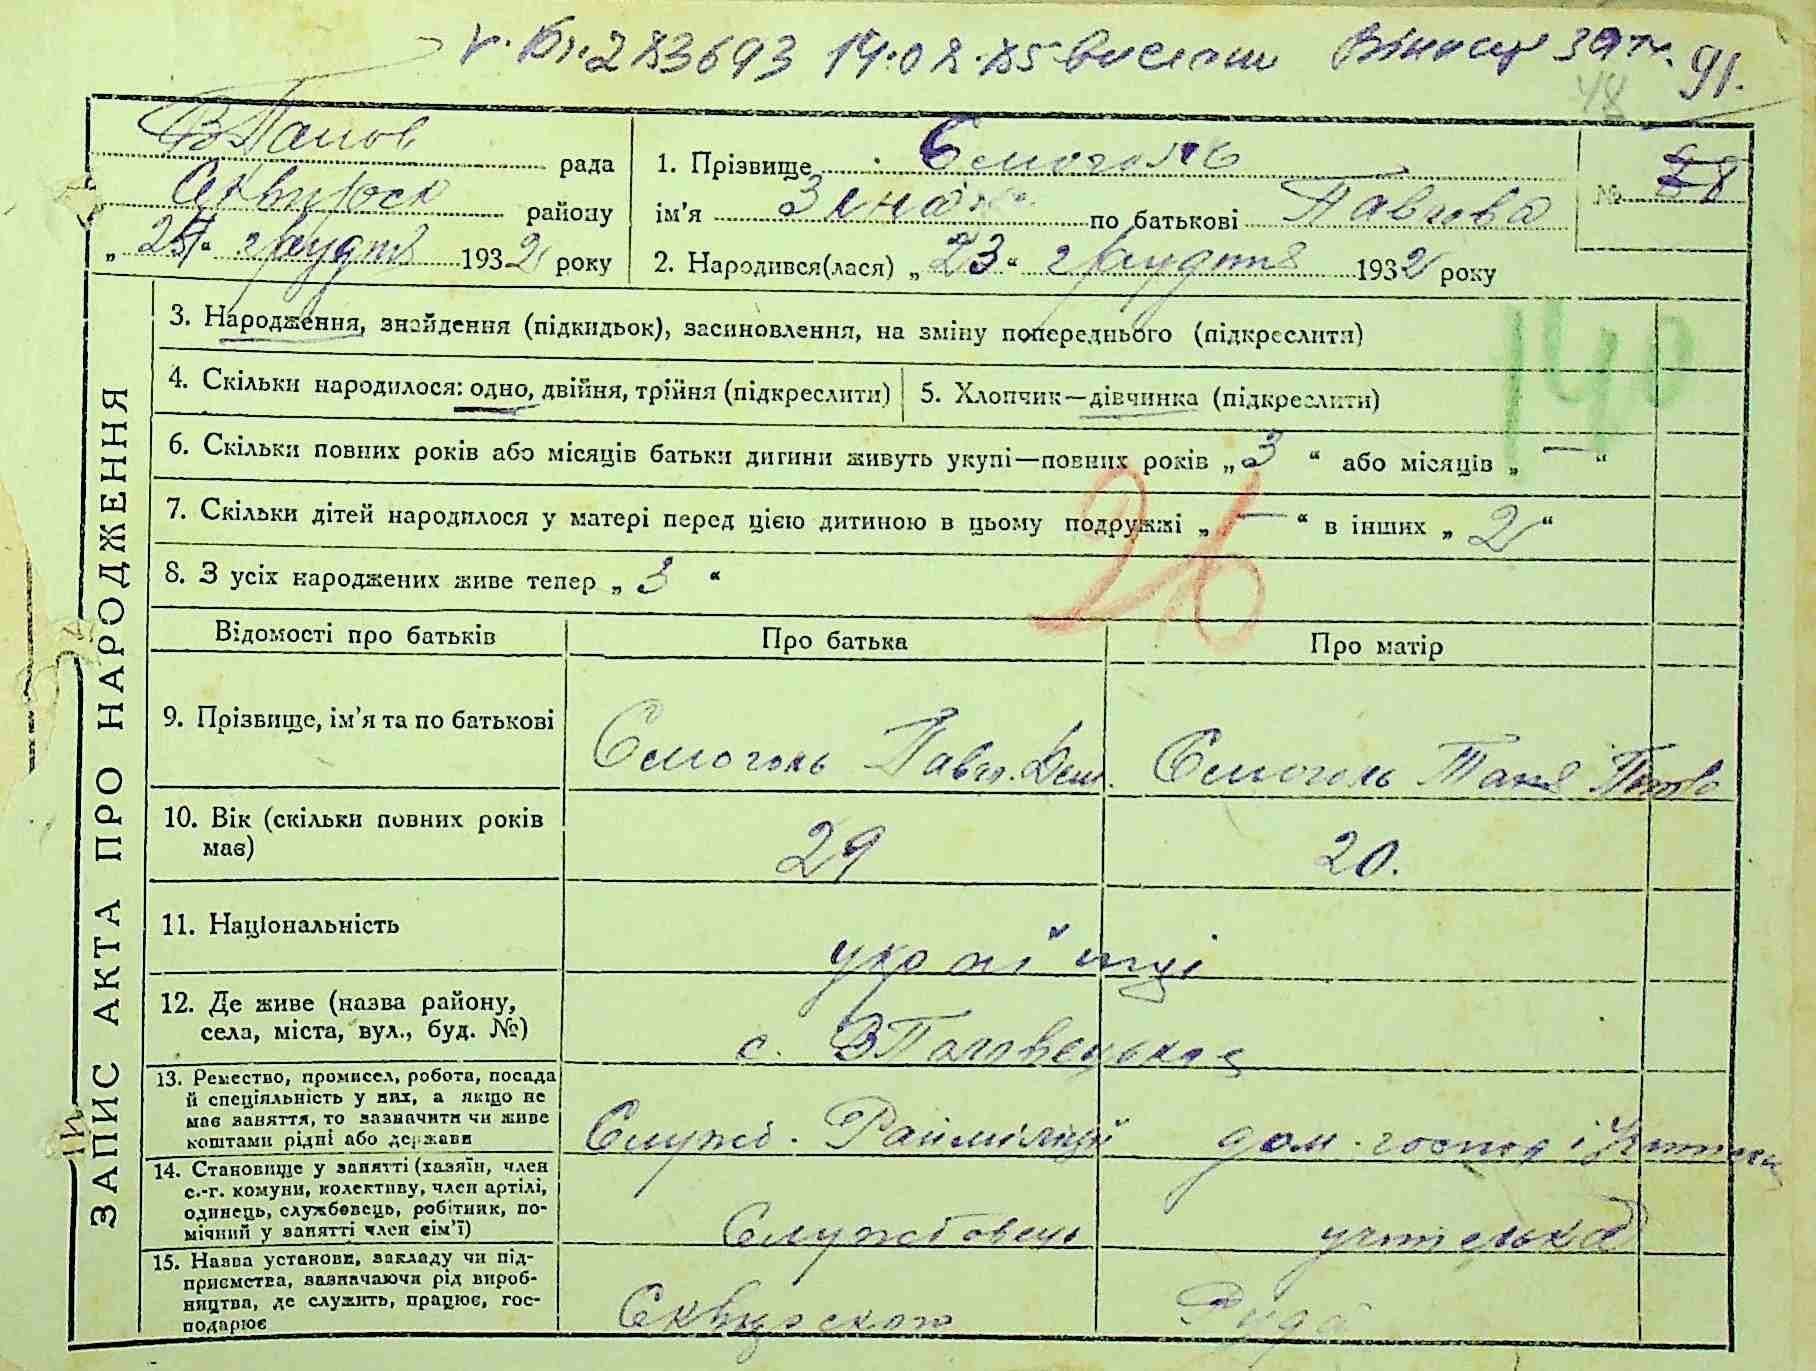 283693 14.02.85 вислали 91.
48
рада
району
"24" грудня 1932 року
1. Прізвище Смоголь
ім'я по батькові Павлова
2. Народився(лася) „23“ грудня 1932 року
№ 58
ЗАПИС АКТА ПРО НАРОДЖЕННЯ
3. Народження, знайдення (підкидьок), засиновлення, на зміну попереднього (підкреслити)
140
4. Скільки народилося: одно, двійня, трійня (підкреслити)
5. Хлопчик—дівчинка (підкреслити)
6. Скільки повних років або місяців батьки дитини живуть укупі—повних років „3“ або місяців „—“
7. Скільки дітей народилося у матері перед цією дитиною в цьому подружжі „—“ в інших „2“
26
8. З усіх народжених живе тепер „3“
Відомості про батьків Про батька Про матір
9. Прізвище, ім'я та по батькові Смоголь Павло Дем. Смоголь Таня
10. Вік (скільки повних років має) 29 20.
11. Національність українці
12. Де живе (назва району, села, міста, вул., буд. №) с. ВПоловецьке
13. Ремество, промисел, робота, посада
й спеціяльність у них, а якщо не
має заняття, то зазначити чи живе
коштами рідні або держави
Служб. Райміліції дом. господ і
14. Становище у занятті (хазяїн, член
с.-г. комуни, колективу, член артілі,
одинець, службовець, робітник, по-
мічний у занятті член сім'ї)
Службовець учителька
15. Назва установи, закладу чи під-
приємства, зазначаючи рід вироб-
ництва, де служить, працює, гос-
подарює
Сквирского Руда